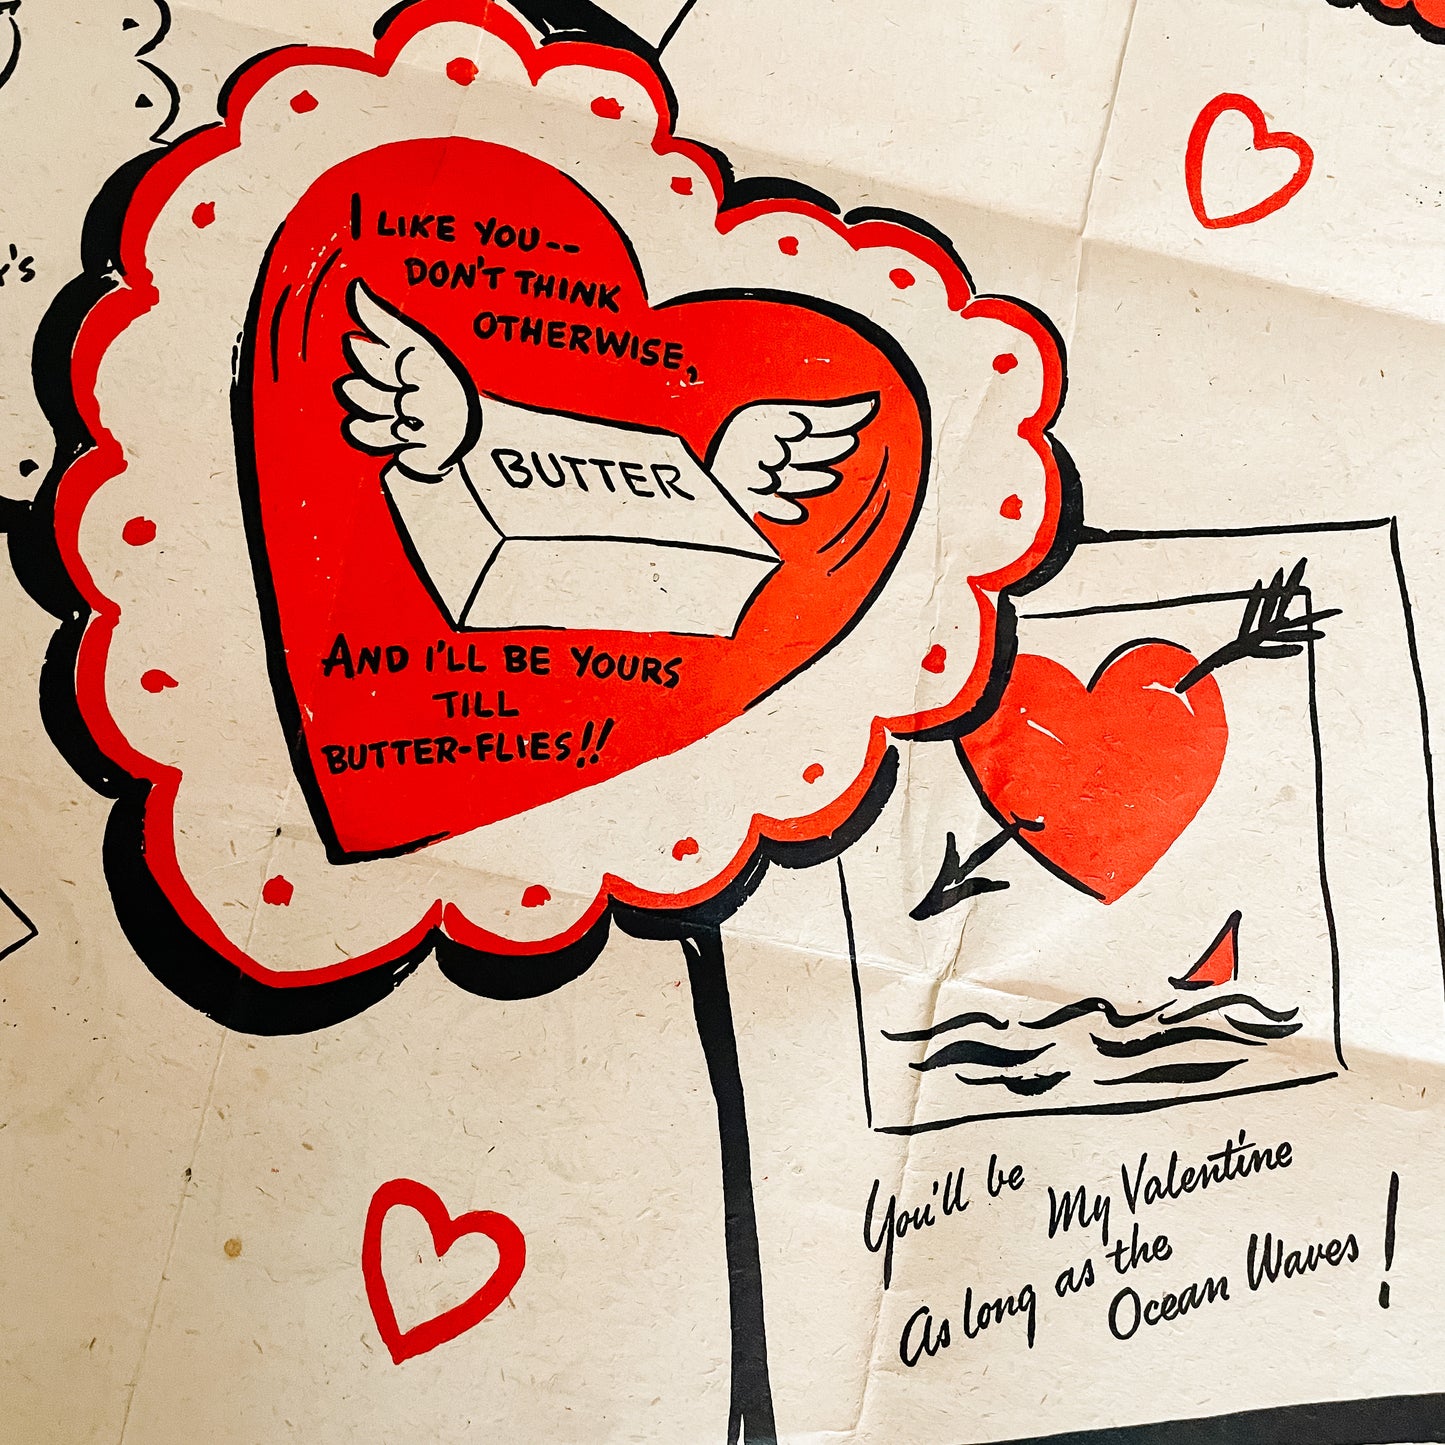 I LIKE YOU--
DON'T THINK
OTHERWISE,
BUTTER
AND I'LL BE YOURS
TILL
BUTTER-FLIES!!
You'll be
My Valentine
As long as the
Ocean Waves!